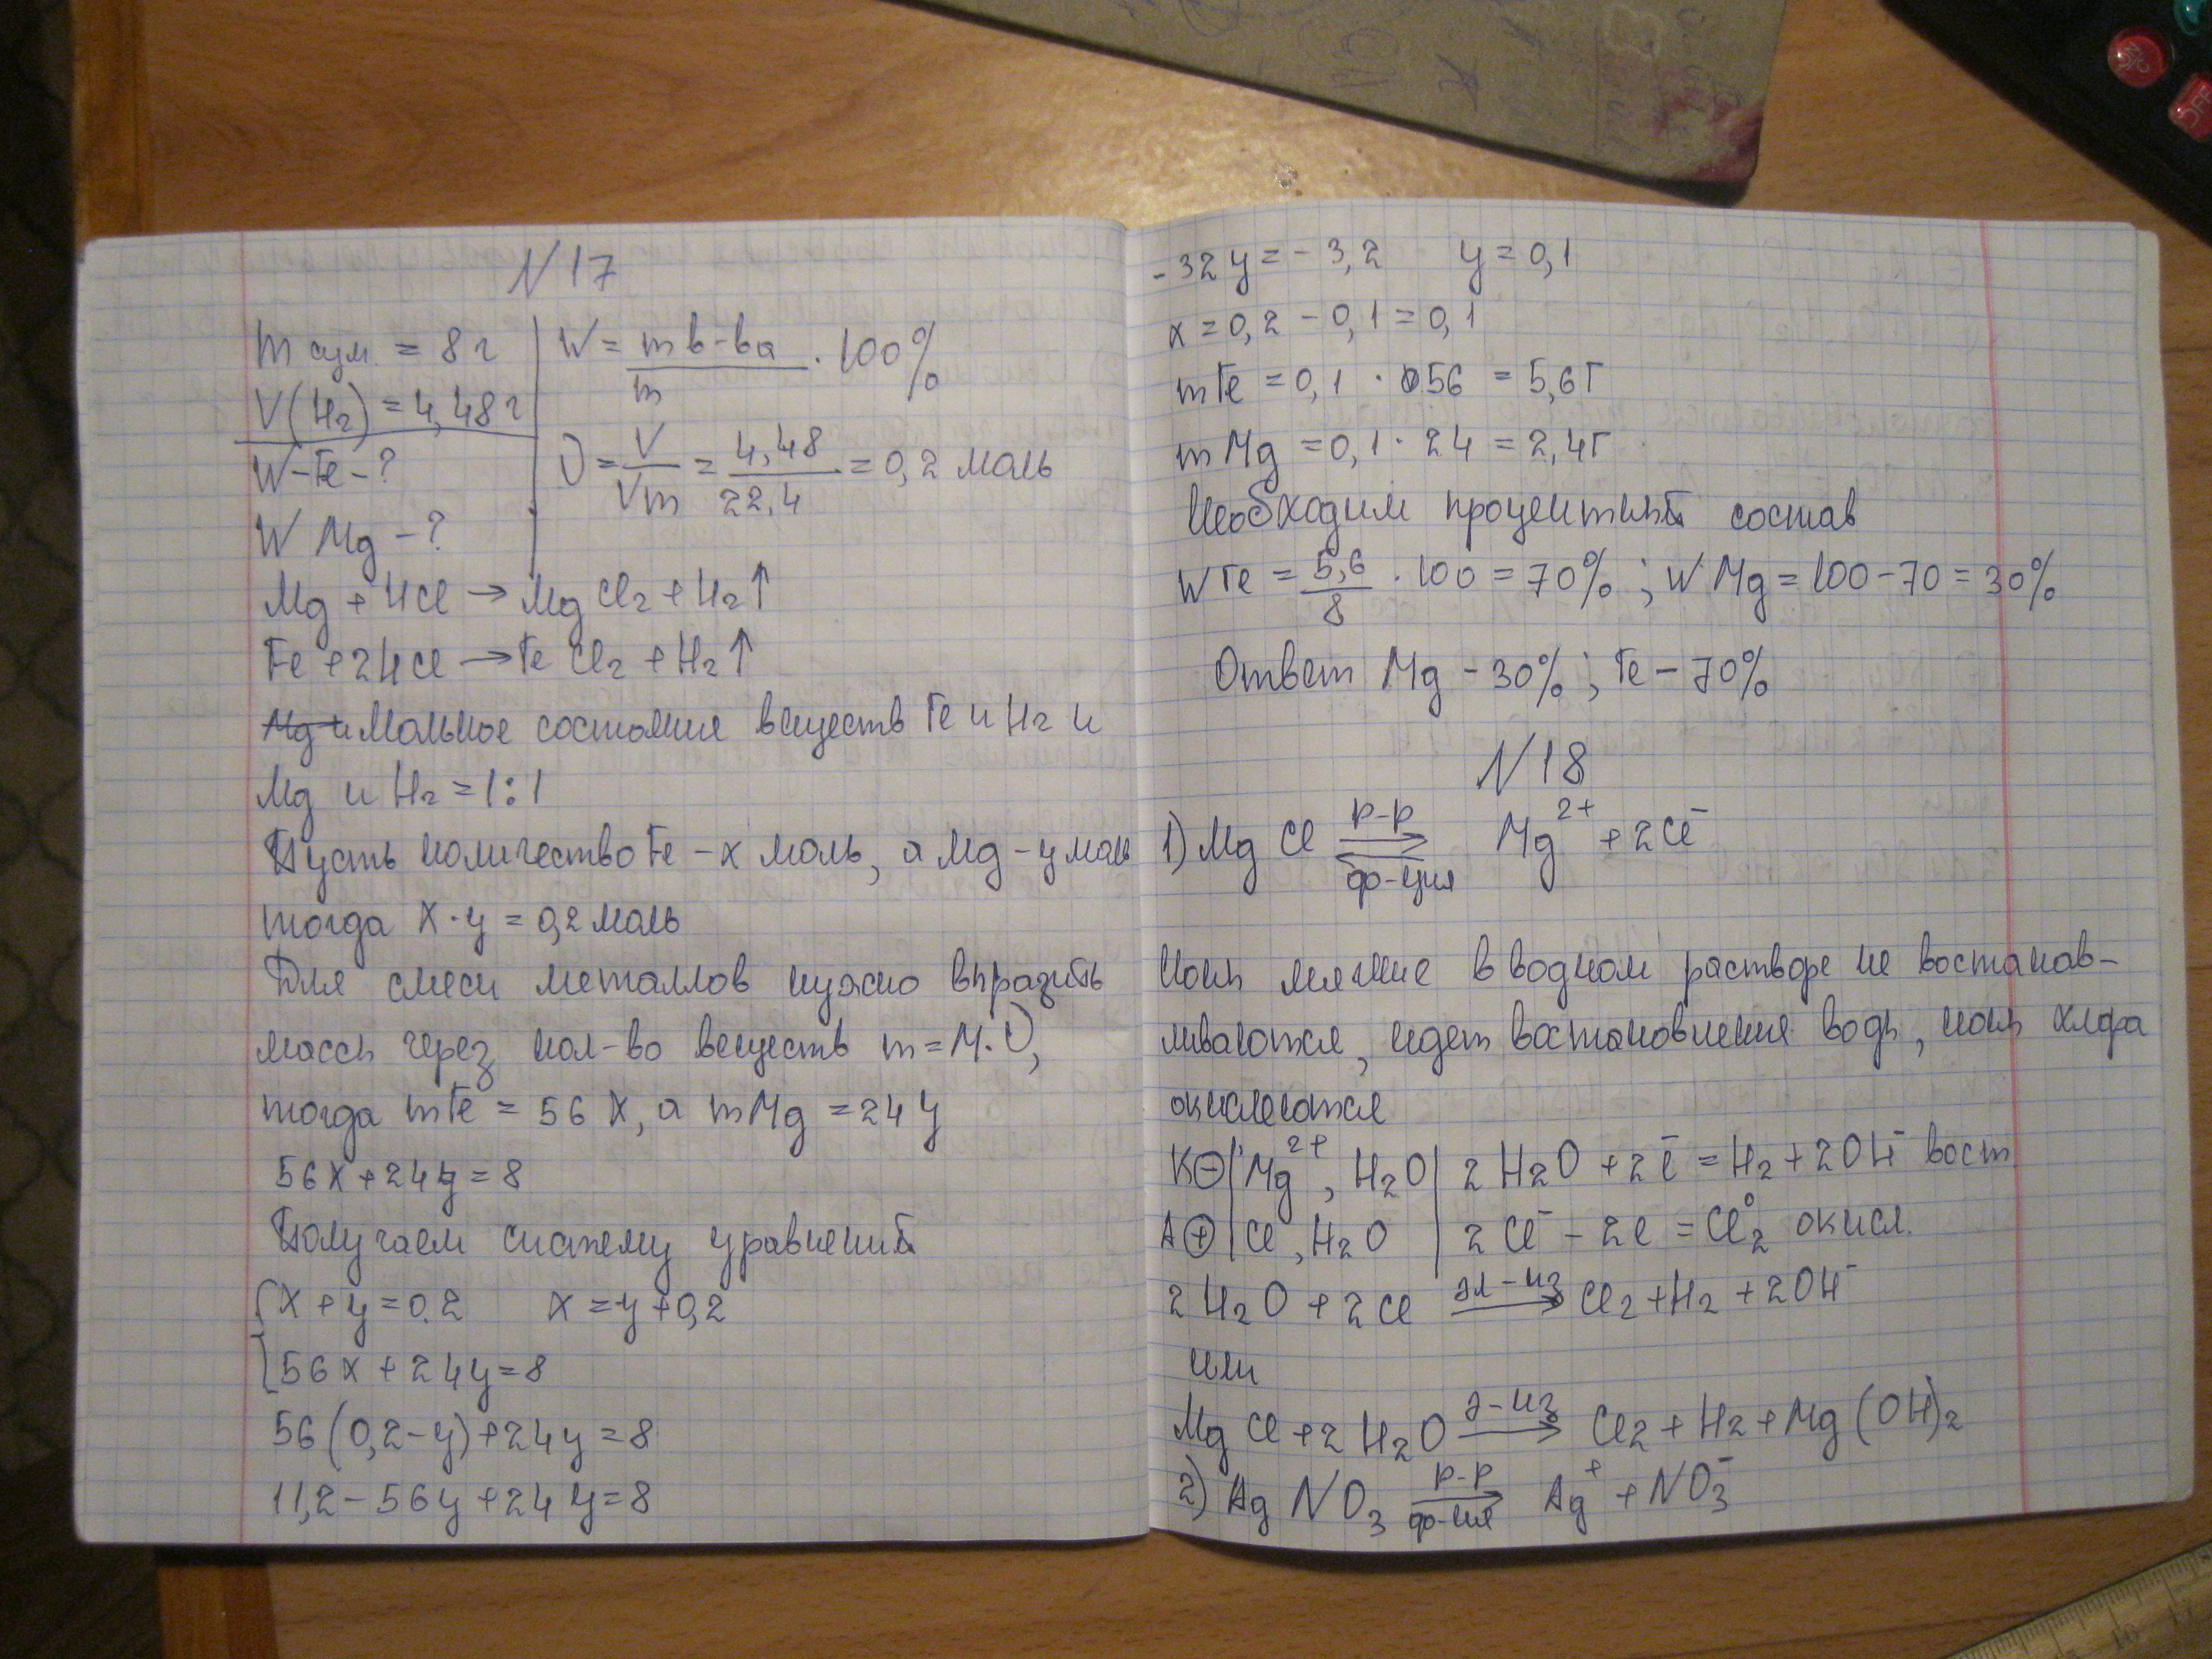 N17
m сум. = 8 г
V(H2) = 4,48 г
W-Fe-?
W Mg - ?
W = mв-ва/m · 100%
ν = V/Vm = 4,48/22,4 = 0,2 моль
Mg + HCl → MgCl2 + H2↑
Fe + 2HCl → FeCl2 + H2↑
Мольное состояние веществ Fe и H2 и
Mg и H2 = 1:1
Пусть количество Fe - x моль, а Mg - y моль
тогда x · y = 0,2 моль
Для смеси металлов нужно выразить
массы через кол-во веществ m = M·ν,
тогда mFe = 56x, а mMg = 24y
56x + 24y = 8
Получаем систему уравнений
{x + y = 0.2 x = -y + 0,2
56x + 24y = 8
56(0,2 - y) + 24y = 8
11,2 - 56y + 24y = 8
-32y = -3,2 y = 0,1
x = 0,2 - 0,1 = 0,1
mFe = 0,1 · 56 = 5,6г
mMg = 0,1 · 24 = 2,4г
Необходим процентный состав
WFe = 5,6/8 · 100 = 70%; W Mg = 100 - 70 = 30%
Ответ Mg - 30%; Fe - 70%
N18
1) MgCl ⇄ р-р дис-ция Mg2+ + 2Cl-
Ионы магние в водном растворе не востанав-
ливаются, идет востановление воды, ионы хлора
окисляются
K⊖ | Mg2+, H2O | 2H2O + 2ē = H2 + 2OH- вост
A⊕ | Cl, H2O | 2Cl- - 2e = Cl2⁰ окисл.
2H2O + 2Cl эл-из → Cl2 + H2 + 2OH-
или
MgCl + 2H2O э-из → Cl2 + H2 + Mg(OH)2
2) AgNO3 р-р → Ag+ + NO3-
ON/C
OFF